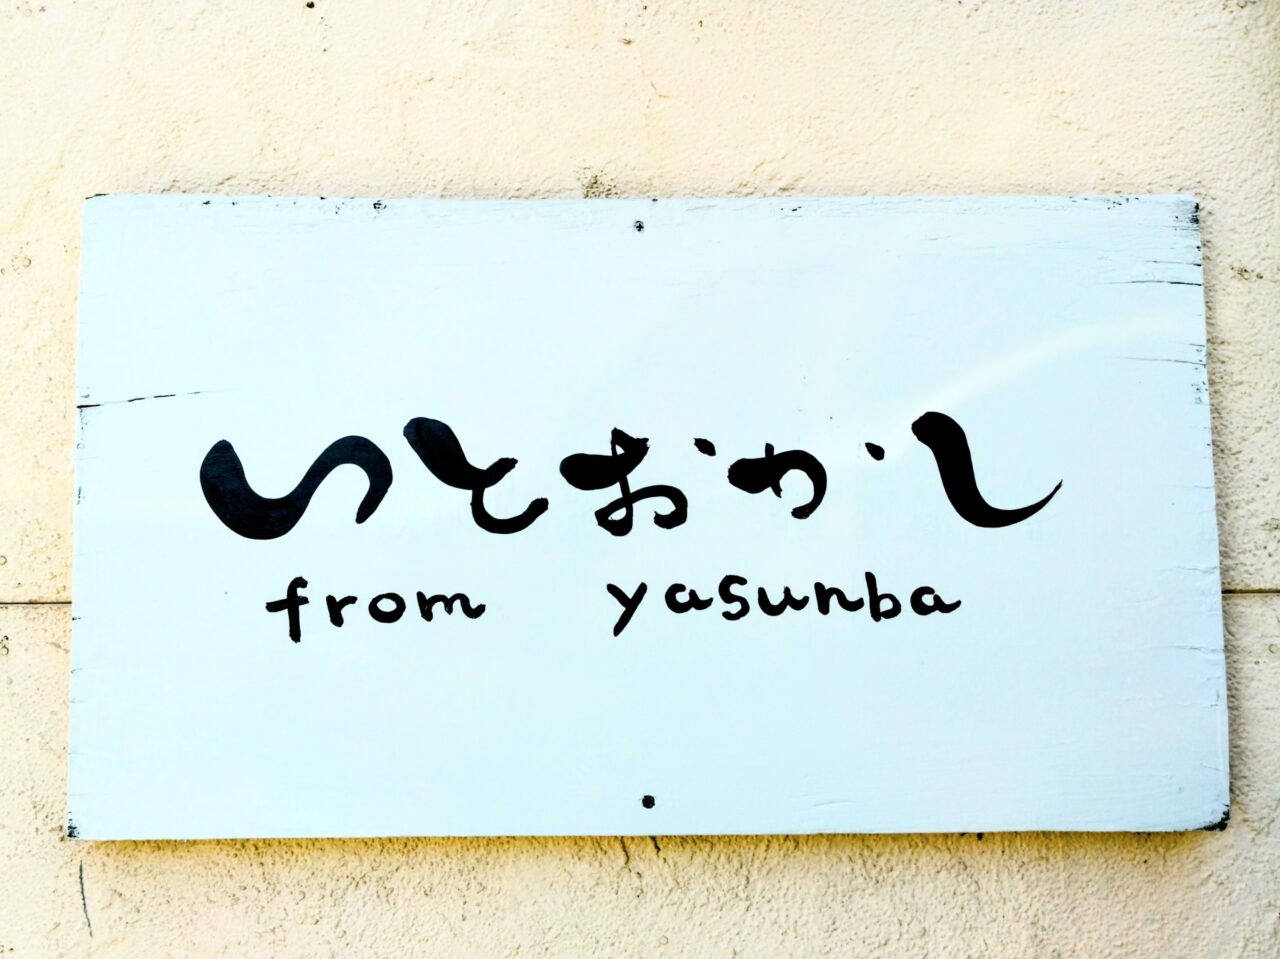 いとおかし
from yasunba